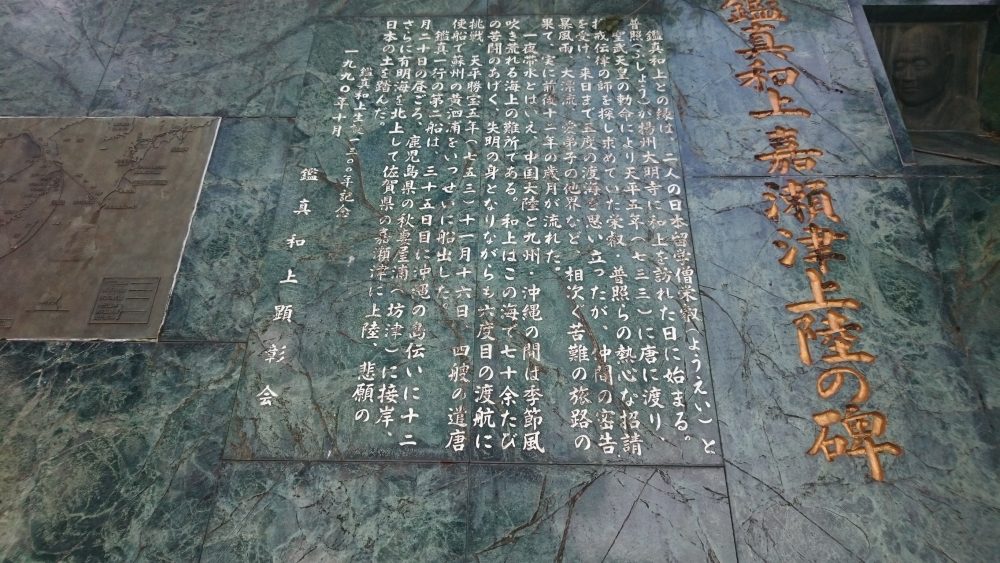 鑑真和上嘉瀬津上陸の碑
鑑真和上との縁は、二人の日本留学僧栄叡(ようえい)と
普照(ふしょう)が揚州大明寺に和上を訪れた日に始まる。
聖武天皇の勅命により天平五年(七三三)に唐に渡り、
授戒伝律の師を探し求めていた栄叡・普照らの熱心な招請
を受け、来日まで五度の渡海を思い立ったが、仲間の密告
暴風雨、大漂流、愛弟子の他界など、相次ぐ苦難の旅路の
果て、実に前後十二年の歳月が流れた。
一夜帯水とはいえ、中国大陸と九州・沖縄の間は季節風
吹き荒れる海上の難所である。和上はこの海で七十余たび
の苦闘のあげく、失明の身となりながらも六度目の渡航に
挑戦。天平勝宝五年(七五三)十一月十六日、四艘の遣唐
使船で蘇州の黄泗浦をいっせいに船出した。
鑑真一行の第二船は、三十五日目に沖縄の島伝いに十二
月二十日の昼ごろ、鹿児島県の秋妻屋浦(坊津)に接岸、
さらに有明海を北上して佐賀県の嘉瀬津に上陸、悲願の
日本の土を踏んだ。
鑑真和上生誕一三〇〇年記念
一九九〇年十月
鑑真和上顕彰会